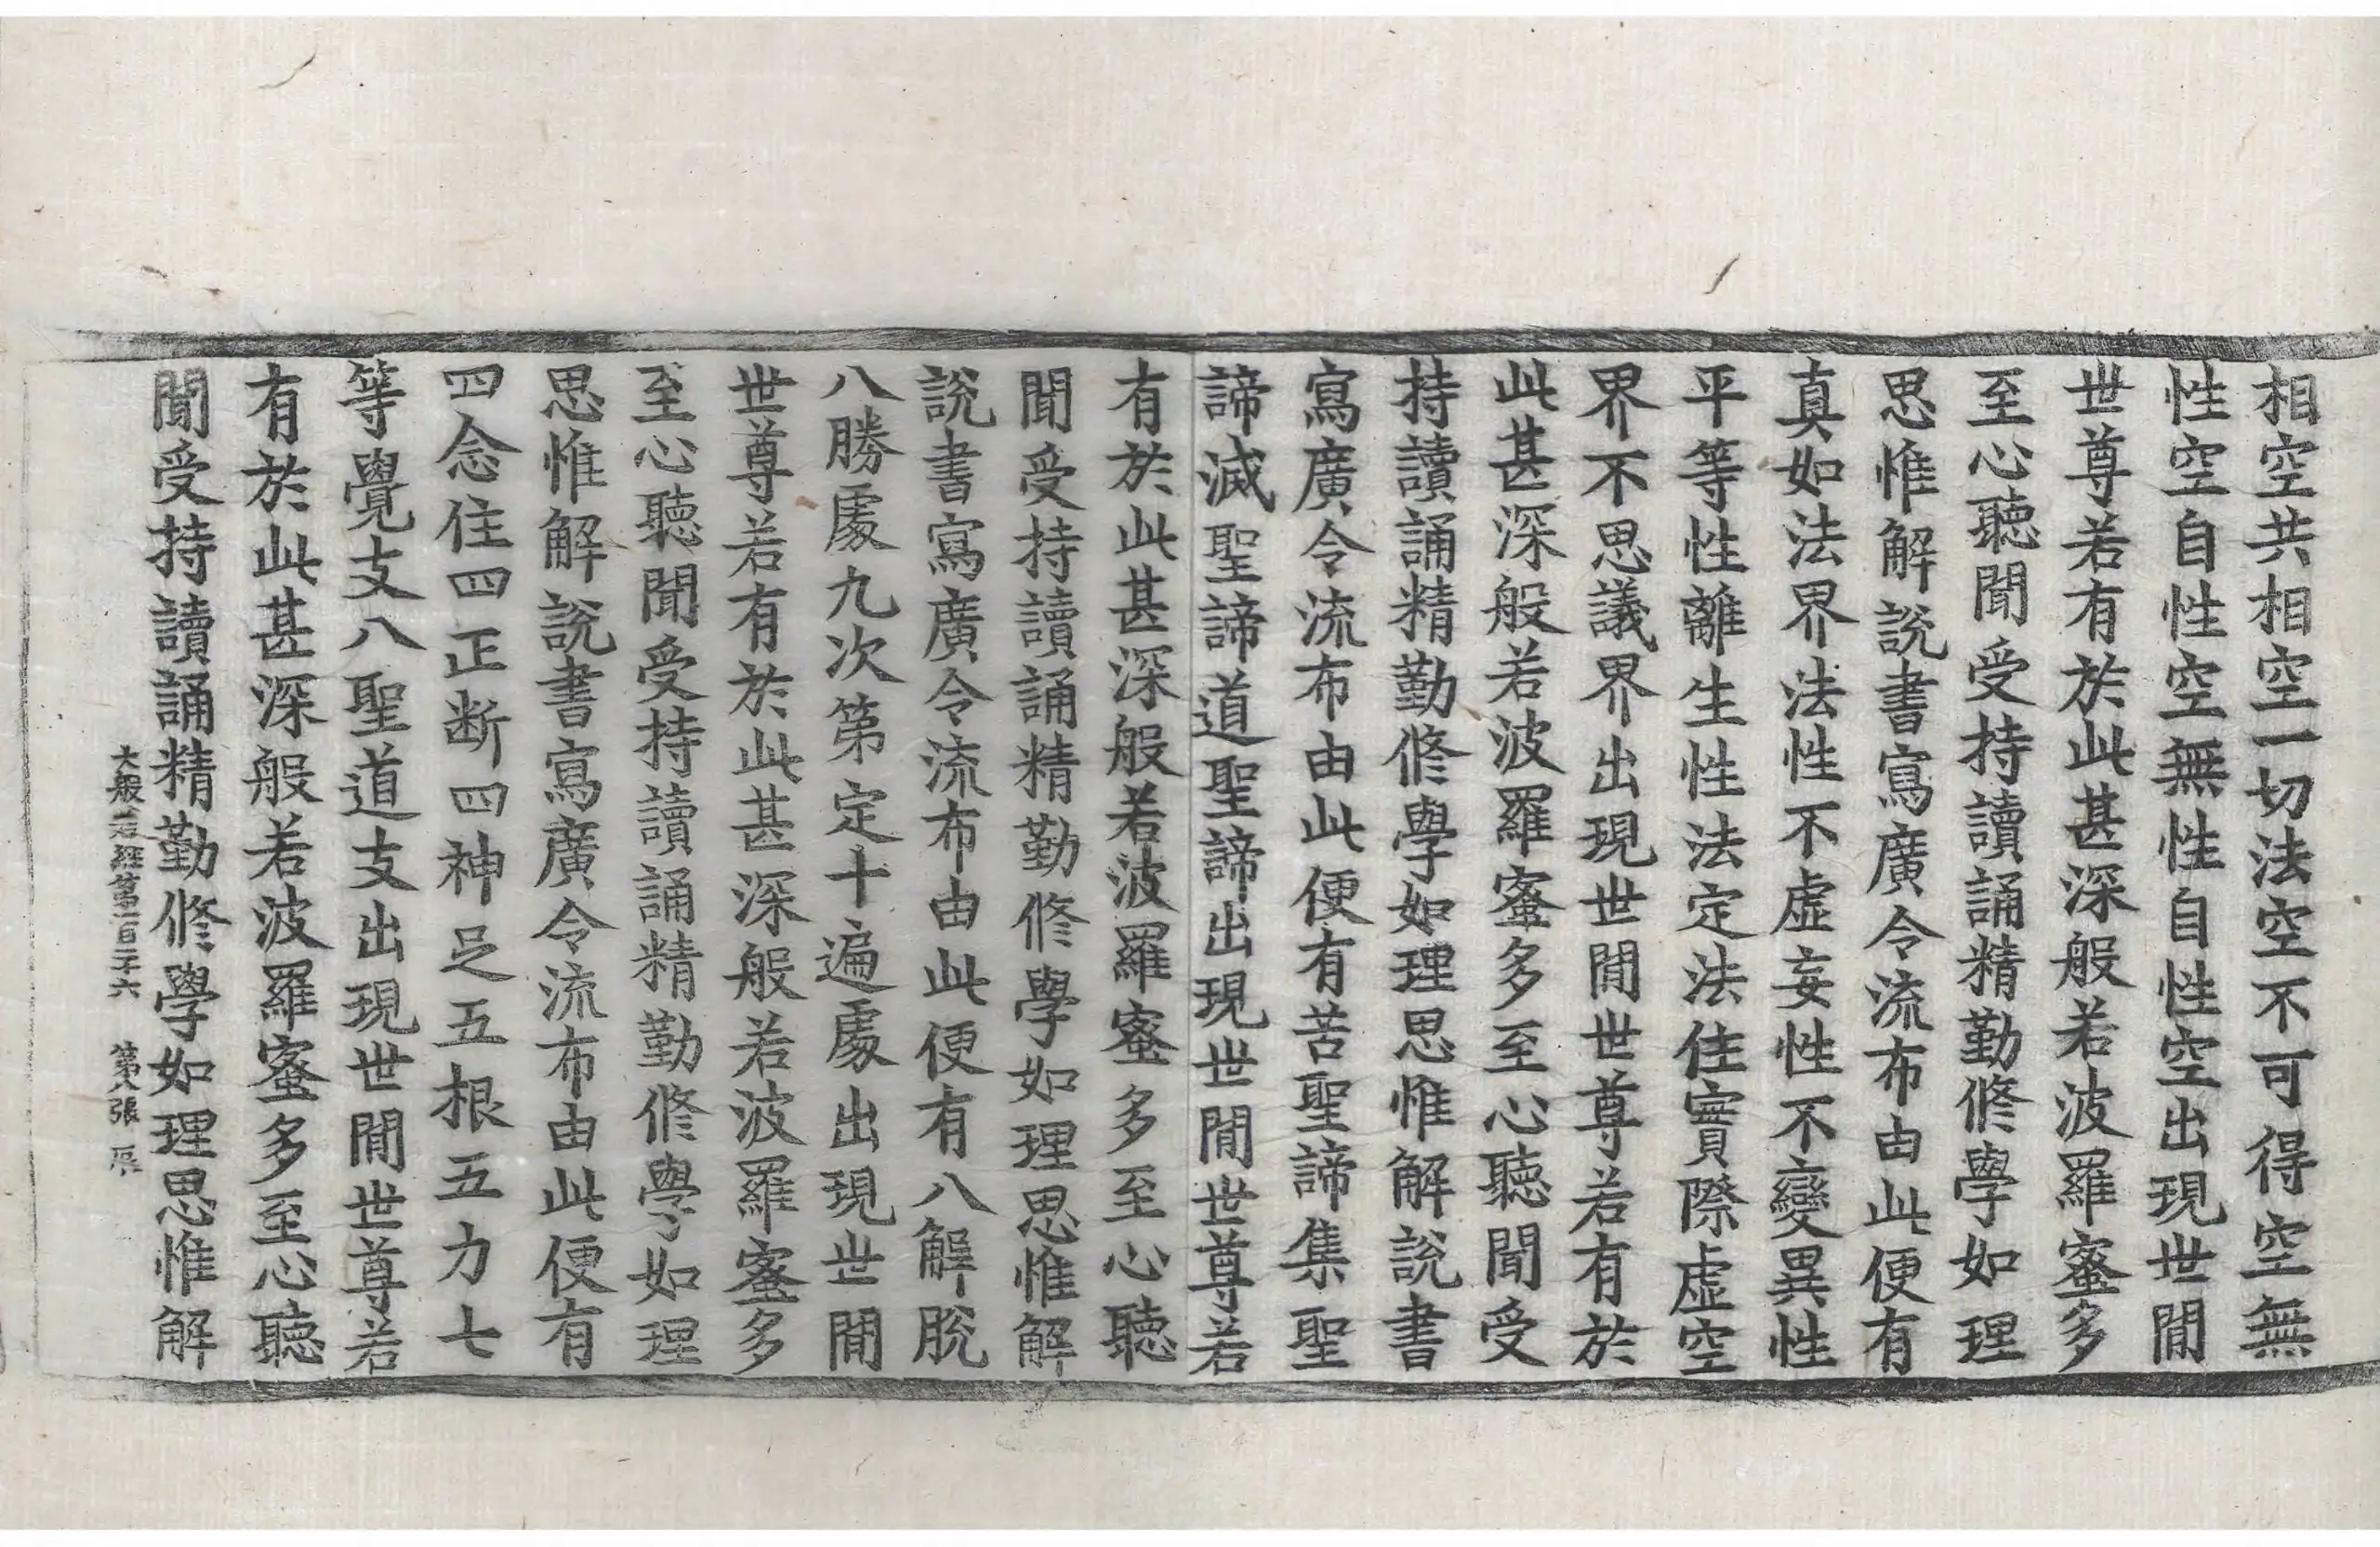 相空共相空一切法空不可得空無
性空自性空無性自性空出現世閒
世尊若有於此甚深般若波羅蜜多
至心聽聞受持讀誦精勤修學如理
思惟解說書寫廣令流布由此便有
真如法界法性不虛妄性不變異性
平等性離生性法定法住實際虛空
界不思議界出現世閒世尊若有於
此甚深般若波羅蜜多至心聽聞受
持讀誦精勤修學如理思惟解說書
寫廣令流布由此便有苦聖諦集聖
諦滅聖諦道聖諦出現世閒世尊若
有於此甚深般若波羅蜜多至心聽
聞受持讀誦精勤修學如理思惟解
說書寫廣令流布由此便有八解脫
八勝處九次第定十遍處出現世閒
世尊若有於此甚深般若波羅蜜多
至心聽聞受持讀誦精勤修學如理
思惟解說書寫廣令流布由此便有
四念住四正斷四神足五根五力七
等覺支八聖道支出現世閒世尊若
有於此甚深般若波羅蜜多至心聽
聞受持讀誦精勤修學如理思惟解
大般若經第一百二十六 第八張